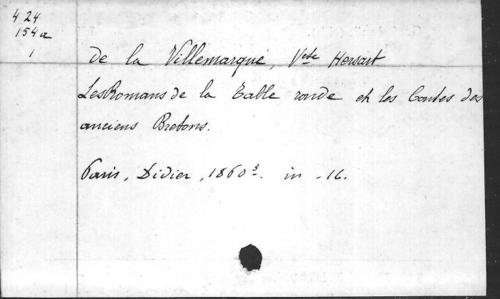 424
154a
1
de la Villemarqué, Vcte Hersart
Les Romans de la Table ronde et les Contes des
anciens Bretons.
Paris, Didier, 1860³. in-16.